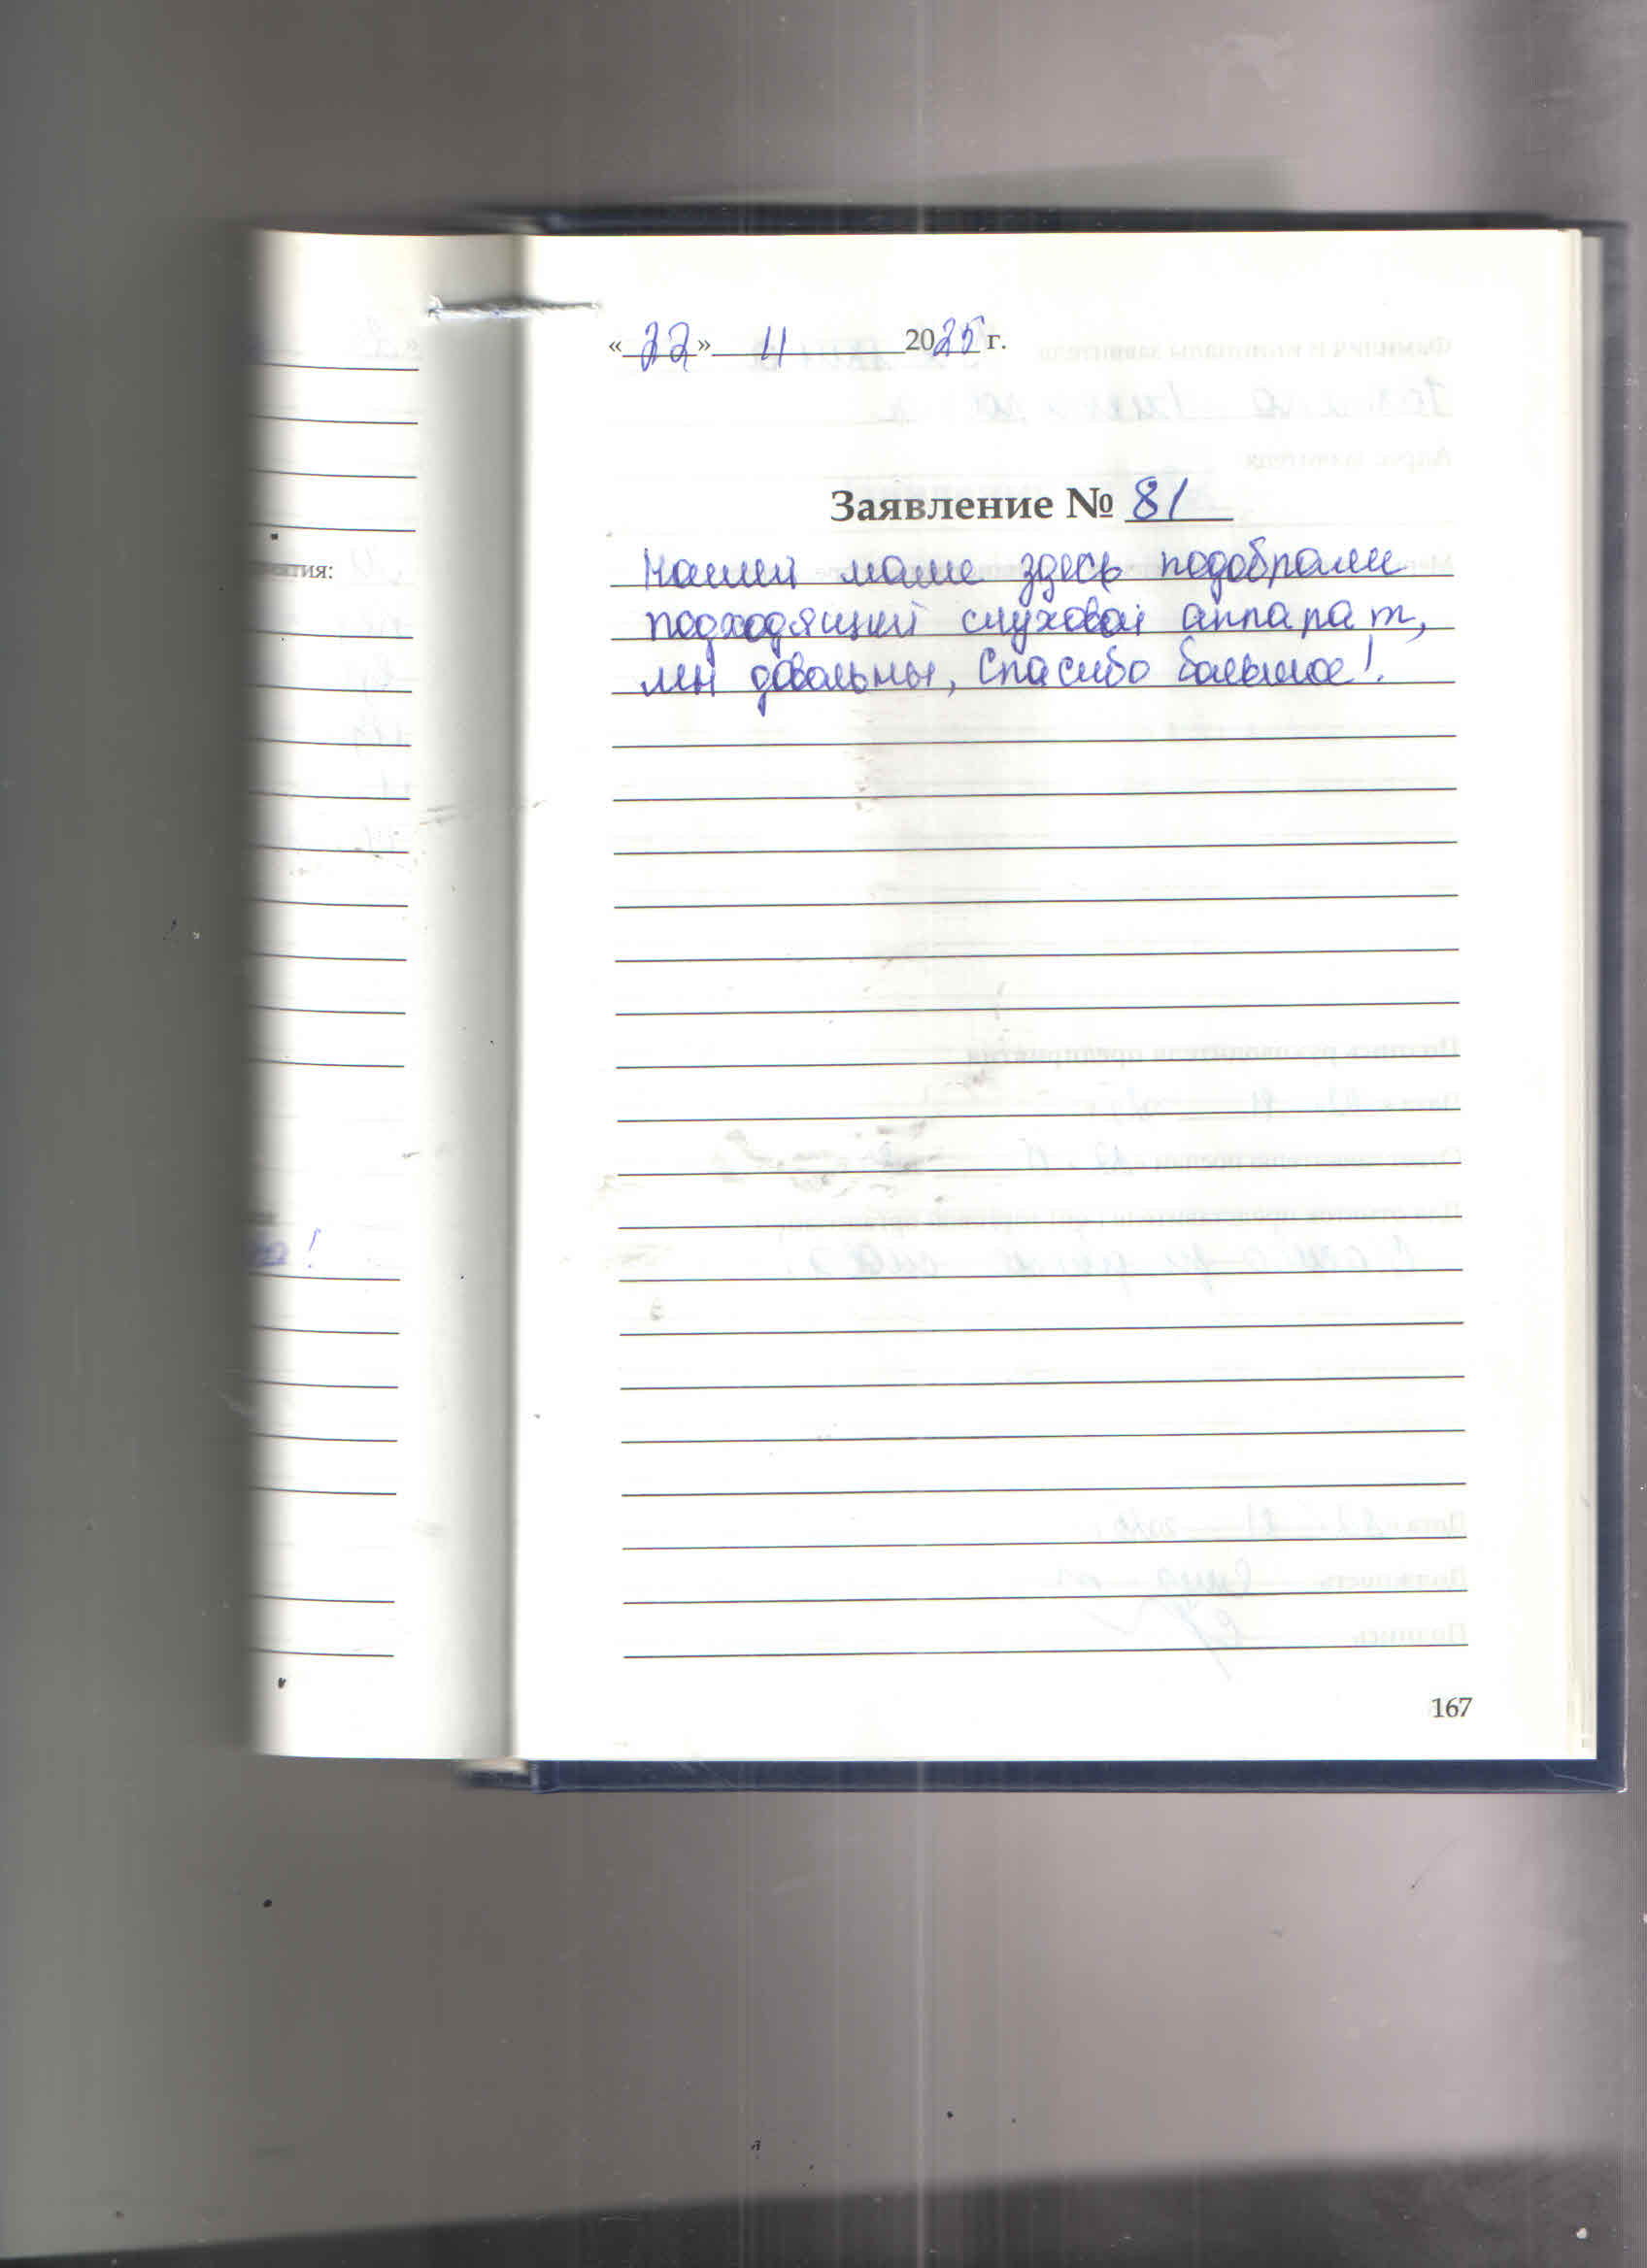 «22» 11 2025 г.
Заявление № 81
Нашей маме здесь подобрали
подходящий слуховой аппарат,
мы довольны, Спасибо большое!
ятия:
!
167